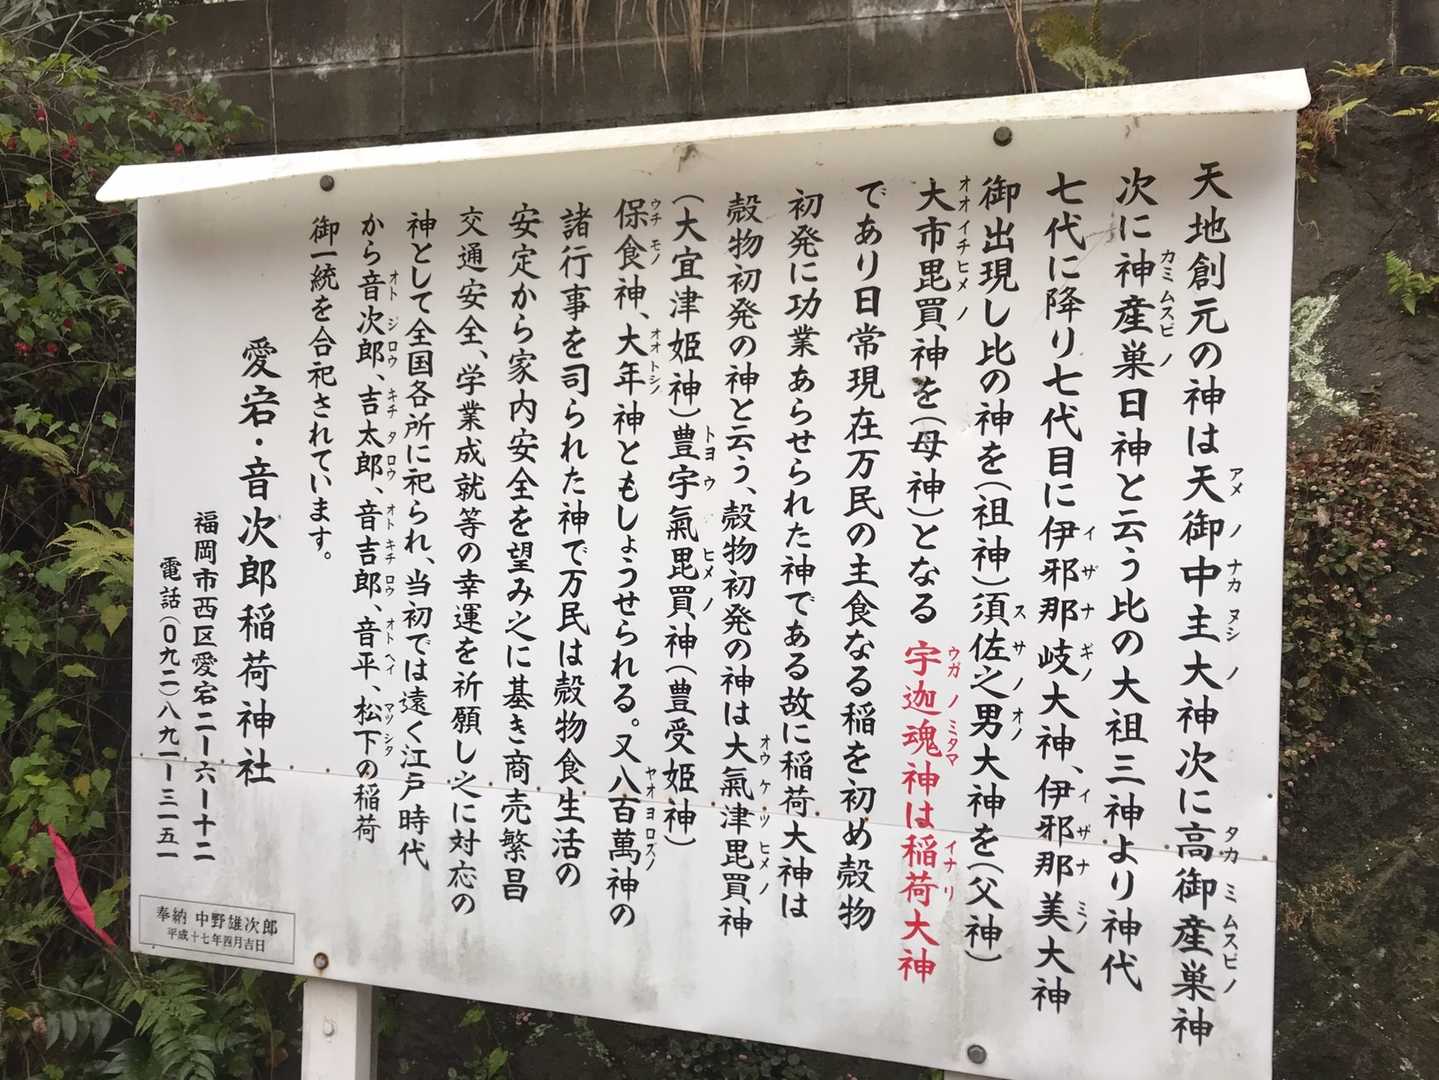 天地創元の神は天御中主大神次に高御産巣神
次に神産巣日神と云う比の大祖三神より神代
七代に降り七代目に伊邪那岐大神、伊邪那美大神
御出現し比の神を(祖神)須佐之男大神を(父神)
大市毘買神を(母神)となる 宇迦魂神は稲荷大神
であり日常現在万民の主食なる稲を初め穀物
初発に功業あらせられた神である故に稲荷大神は
穀物初発の神と云う、穀物初発の神は大氣津毘買神
(大宜津姫神)豊宇氣毘買神(豊受姫神)
保食神、大年神ともしょうせられる。又八百萬神の
諸行事を司られた神で万民は穀物食生活の
安定から家内安全を望み之に基き商売繁昌
交通安全、学業成就等の幸運を祈願し之に対応の
神として全国各所に祀られ、当初では遠く江戸時代
から音次郎、吉太郎、音吉郎、音平、松下の稲荷
御一統を合祀されています。
愛宕・音次郎稲荷神社
福岡市西区愛宕二ー六ー十二
電話(〇九二)八九一ー三一五一
奉納 中野雄次郎
平成十七年四月吉日